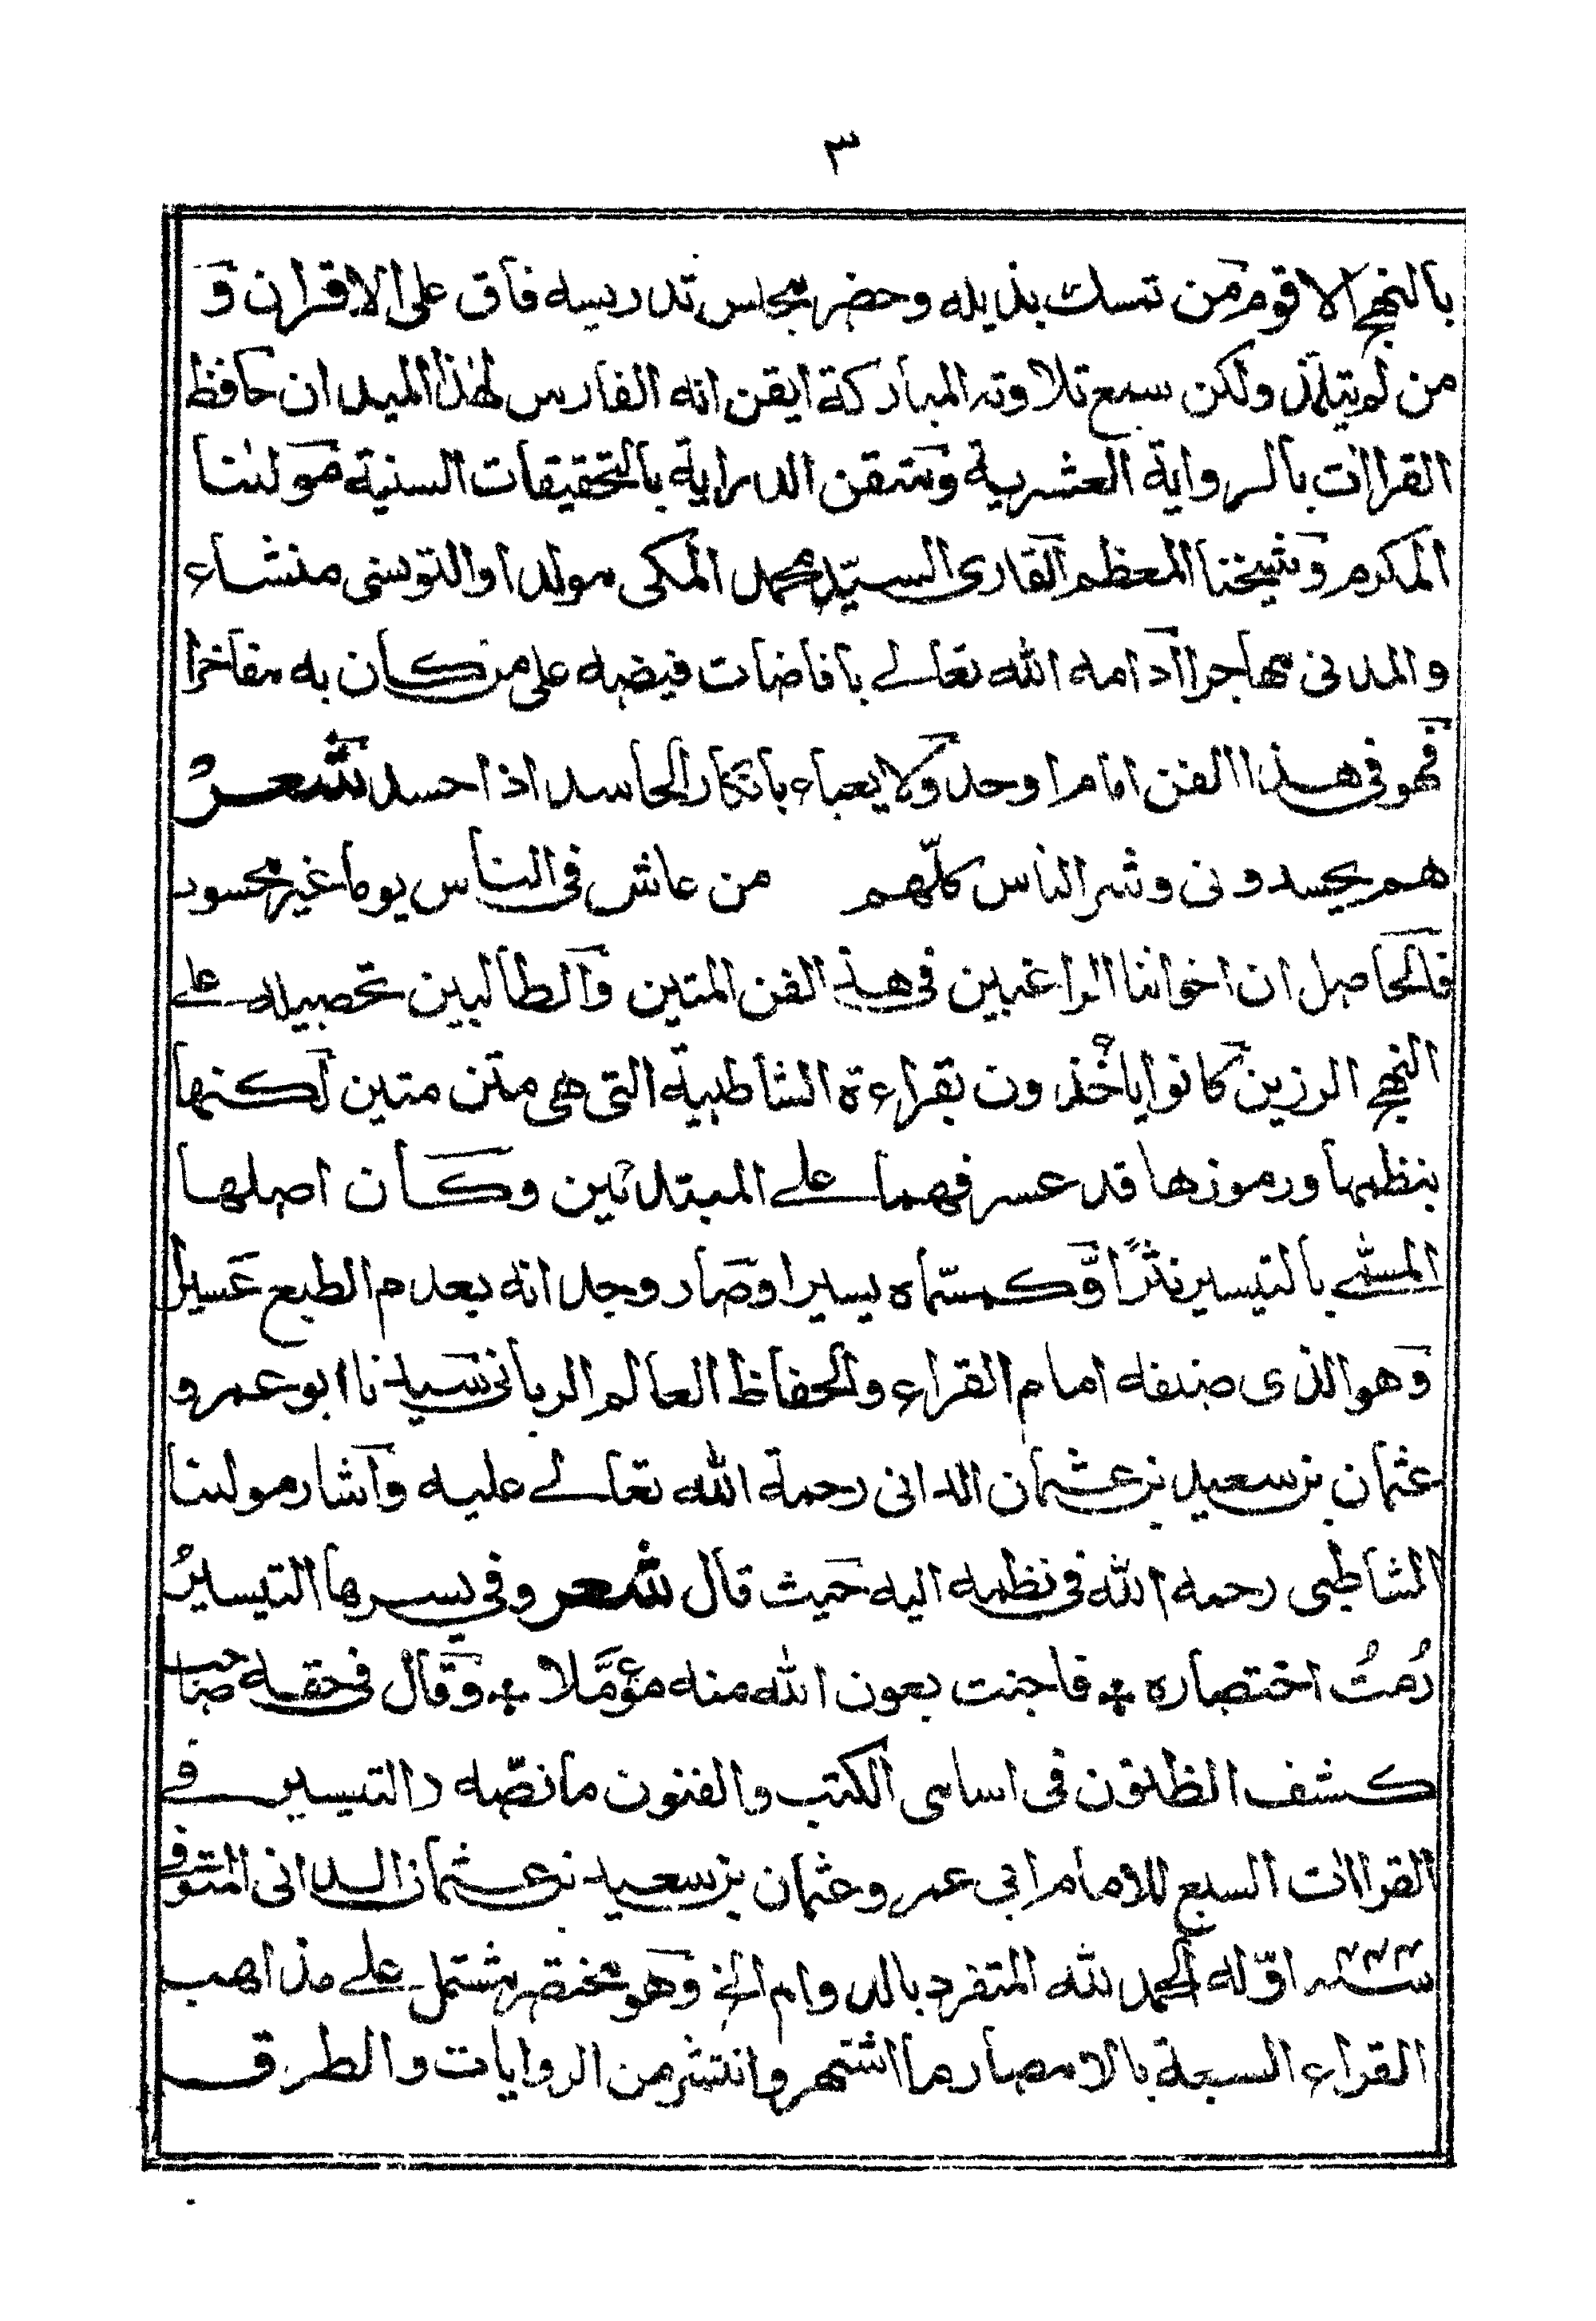 ٣
بالنهج الاقوم من تمسك بذيله وحضر مجلس تدريسه فاق على الاقران و
من لم يتلمّذ ولكن سمع تلاوته المباركة ايقن انه الفارس لهٰذا الميدان حافظ
القراٰات بالرواية العشرية ومتقن الدراية بالتحقيقات السنية مولٰنا
المكرم وشيخنا المعظم القارى السيّد محمد المكى مولدا والتونسى منشاء
والمدنى مهاجرا ادامه الله تعالے بافاضات فيضه على من كان به مفاخرا
فهو فى هذا الفن امام اوحد ولا يعباء بانكار الحاسد اذا حسد شعرٌ
هم يحسدونى وشر الناس كلّهم من عاش فى الناس يوما غير محسود
فالحاصل ان اخواننا الراغبين فى هذ الفن المتين والطالبين تحصيله علے
النهج الرزين كانوا ياخذون بقراءة الشاطبية التى هى متن متين لكنها
بنظمها ورموزها قد عسر فهما علے المبتدئين وكان اصلها
المسمّٰے بالتيسير نثرًا وَّكمسمّاه يسيرا وصار وجدانه بعدم الطبع عسيرا
وهو الذى صنفه امام القراء والحفاظ العالم الربانى سيدنا ابو عمرو
عثمان بن سعيد بن عثمان الدانى رحمة الله تعالے عليه واشار مولٰنا
الشاطبى رحمه الله فى نظمه اليه حيث قال شعر وفى يسرها التيسيرُ
رُمتُ اختصاره ٭ فاجنت بعون الله منه مؤمَّلا ٭ وقال فى حقه صاحب
كشف الظنون فى اسامى الكتب والفنون ما نصّه د التيسير فے
القراٰات السبع للامام ابى عمرو عثمان بن سعيد بن عثمان الدانى المتوفے
٤٤٤ سنه اوّله الحمد لله المتفرد بالدوام الخ وهو مختصر مشتمل علے مذاهب
القراء السبعة بالامصار ما اشتهر وانتشر من الروايات والطرق